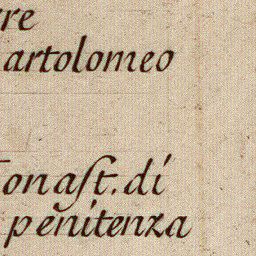 rre
artolomeo
onast. di
penitenza